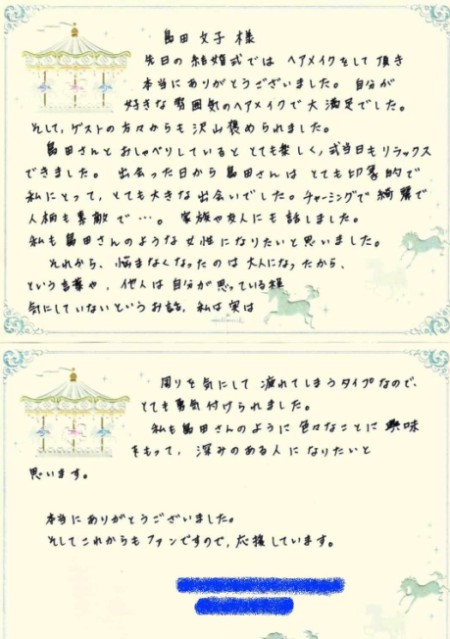 島田文子様
先日の結婚式では ヘアメイクをして頂き
本当にありがとうございました。自分が
好きな雰囲気のヘアメイクで大満足でした。
そして、ゲストの方々からも沢山褒められました。
島田さんとおしゃべりしていると とても楽しく、式当日もリラックス
できました。出会った日から島田さんは とても印象的で
私にとって、とても大きな出会いでした。チャーミングで綺麗で
人柄も素敵で…。家族や友人にも話しました。
私も島田さんのような女性になりたいと思いました。
それから、悩まなくなったのは大人になったから、
という言葉や、他人は自分が思っている様
気にしていないというお話、私は実は
周りを気にして疲れてしまうタイプなので、
とても勇気付けられました。
私も島田さんのように色々なことに興味
をもって、深みのある人になりたいと
思います。
本当にありがとうございました。
そしてこれからもファンですので、応援しています。